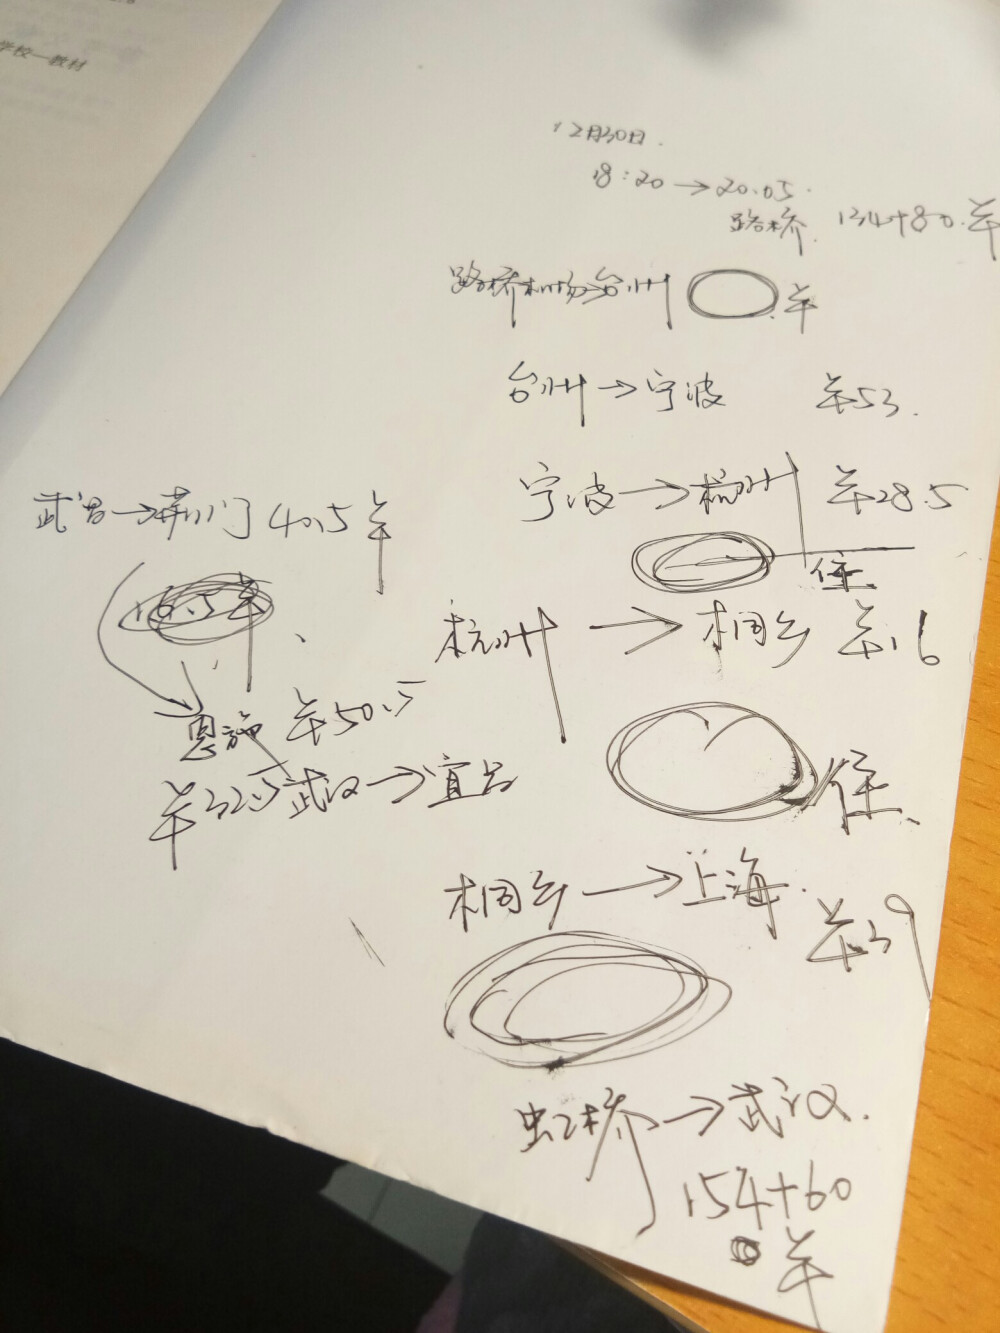 学校一教材
12月30日.
18:20→20.05.
路桥. 134+80.羊
路桥机场→台州 羊
台州→宁波 羊53.
宁波→杭州 羊28.5
住
杭州→桐乡 羊16
住
桐乡→上海. 羊39
虹桥→武汉.
154+60
羊
武昌→荆门 40.5羊
16.5羊
恩施 羊50.5
羊32.5 武汉→宜昌